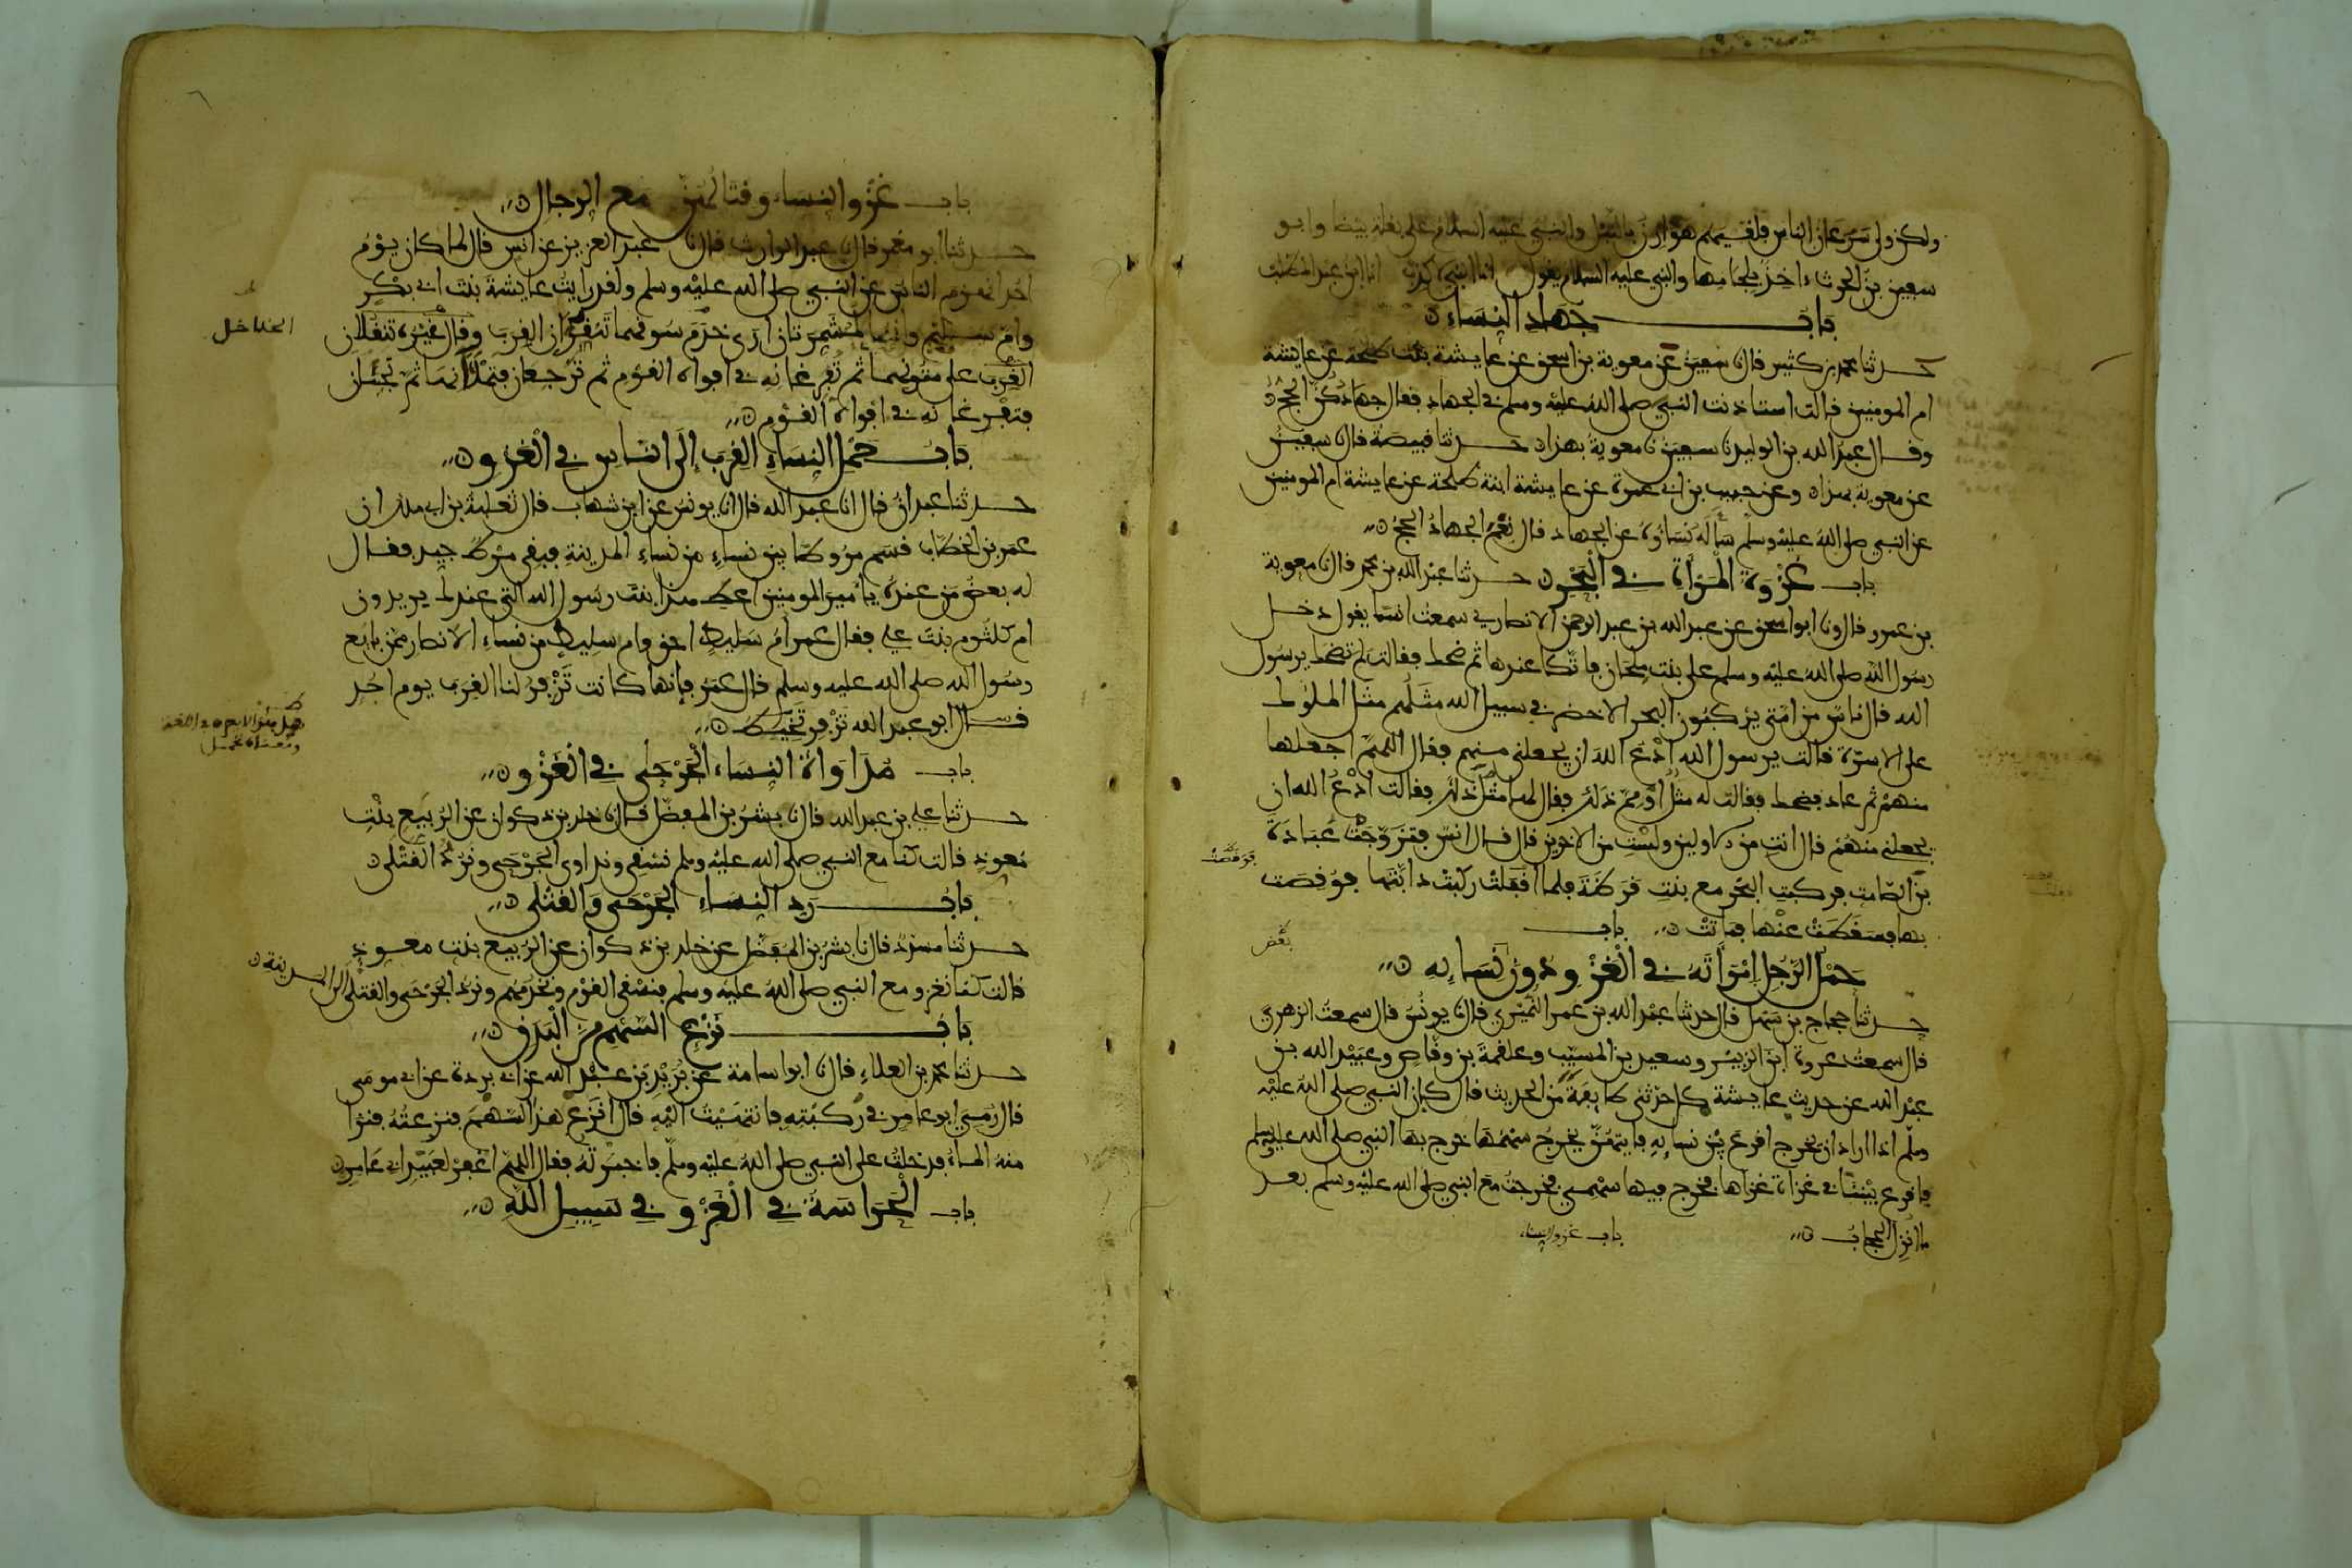 ولكن ولى سرعان الناس فلقيهم هوازن بالنبل والنبي عليه السلام على بغلة بيضا وابو
سفين بن الحرث ءاخذ بلجامها والنبي عليه السلام يقول انا النبي لا كذب انا ابن عبد المطلب
باب جهاد النساء
حدثنا محمد بن كثير قال نا سفين عن معوية بن اسحق عن عايشة بنت طلحة عن عايشة
ام المومنين قالت استاذنت النبي صلى الله عليه وسلم في الجهاد فقال جهادكن الحج
وقال عبد الله بن الوليد نا سفين نا معوية بهذا حدثنا قبيصة قال نا سفين
عن معوية بهذا وعن حبيب بن ابي عمرة عن عايشة ابنة طلحة عن عايشة ام المومنين
عن النبي صلى الله عليه وسلم سأله نساؤه عن الجهاد قال نعم الجهاد الحج
باب غزوة المرأة في البحر حدثنا عبد الله بن محمد قال نا معوية
بن عمرو قال نا ابو اسحق عن عبد الله بن عبد الرحمن الانصاري سمعت انسا يقول دخل
رسول الله صلى الله عليه وسلم على بنت ملحان فاتكا عندها ثم ضحك فقالت لم تضحك يرسول
الله قال ناس من امتي يركبون البحر الاخضر في سبيل الله مثلهم مثل الملوك
على الاسرة فقالت يرسول الله ادع الله ان يجعلني منهم فقال اللهم اجعلها
منهم ثم عاد فضحك فقالت له مثل او مم ذلك فقال لها مثل ذلك فقالت ادع الله ان
يجعلني منهم قال انت من الاولين ولست من الاخرين قال قال انس فتزوجت عبادة
بن الصامت فركبت البحر مع بنت قرظة فلما قفلت ركبت دابتها فوقصت
بها فسقطت عنها فماتت باب
حمل الرجل امرأته في الغزو دون بعض نسايه
حدثنا حجاج بن منهال قال حدثنا عبد الله بن عمر النميري قال نا يونس قال سمعت الزهري
قال سمعت عروة ابن الزبير وسعيد بن المسيب وعلقمة بن وقاص وعبيد الله بن
عبد الله عن حديث عايشة كل حدثني طايفة من الحديث قال كان النبي صلى الله عليه
وسلم اذا اراد ان يخرج اقرع بين نسايه فايتهن يخرج سهمها خرج بها النبي صلى الله عليه وسلم
فاقرع بيننا في غزاة غزاها فخرج فيها سهمي فخرجت مع النبي صلى الله عليه وسلم بعد
ما انزل الحجاب
باب غزو النساء
باب غزو النساء وقتالهن مع الرجال
حدثنا ابو معمر قال نا عبد الوارث قال نا عبد العزيز عن انس قال لما كان يوم
احد انهزم الناس عن النبي صلى الله عليه وسلم ولقد رايت عايشة بنت ابي بكر
وام سليم وانهما لمشمرتان ارى خدم سوقهما تنقزان القرب وقال غيره تنقلان
الخلاخل
القرب على متونهما ثم تفرغانه في افواه القوم ثم ترجعان فتملآنها ثم تجيئان
فتفرغانه في افواه القوم
باب حمل النساء القرب الى الناس في الغزو
حدثنا عبدان قال انا عبد الله قال انا يونس عن ابن شهاب قال ثعلبة بن ابي ملك ان
عمر بن الخطاب قسم مروطا بين نساء من نساء المدينة فبقي مرط جيد فقال
له بعض من عنده يا مير المومنين اعط هذا بنت رسول الله التي عندك يريدون
ام كلثوم بنت علي فقال عمر ام سليط احق وام سليط من نساء الانصار ممن بايع
رسول الله صلى الله عليه وسلم قال عمر فإنها كانت تزفر لنا القرب يوم احد
قال ابو عبد الله تزفر تخيط
باب مداواة النساء الجرحى في الغزو
حدثنا علي بن عبد الله قال نا بشر بن المفضل قال نا خلد بن ذكوان عن الربيع بنت
معوذ قالت كنا مع النبي صلى الله عليه وسلم نسقي ونداوي الجرحى ونرد القتلى
باب رد النساء الجرحى والقتلى
حدثنا مسدد قال نا بشر بن المفضل عن خلد بن ذكوان عن الربيع بنت معوذ
قالت كنا نغزو مع النبي صلى الله عليه وسلم فنسقي القوم ونخدمهم ونرد الجرحى والقتلى الى المدينة
باب نزع السهم من البدن
حدثنا محمد بن العلاء قال نا ابو اسامة عن بريد بن عبد الله عن ابي بردة عن ابي موسى
قال رمي ابو عامر في ركبته فانتهيت اليه قال انزع هذا السهم فنزعته فنزا
منه الماء فدخلت على النبي صلى الله عليه وسلم فاخبرته فقال اللهم اغفر لعبيد ابي عامر
باب الحراسة في الغزو في سبيل الله